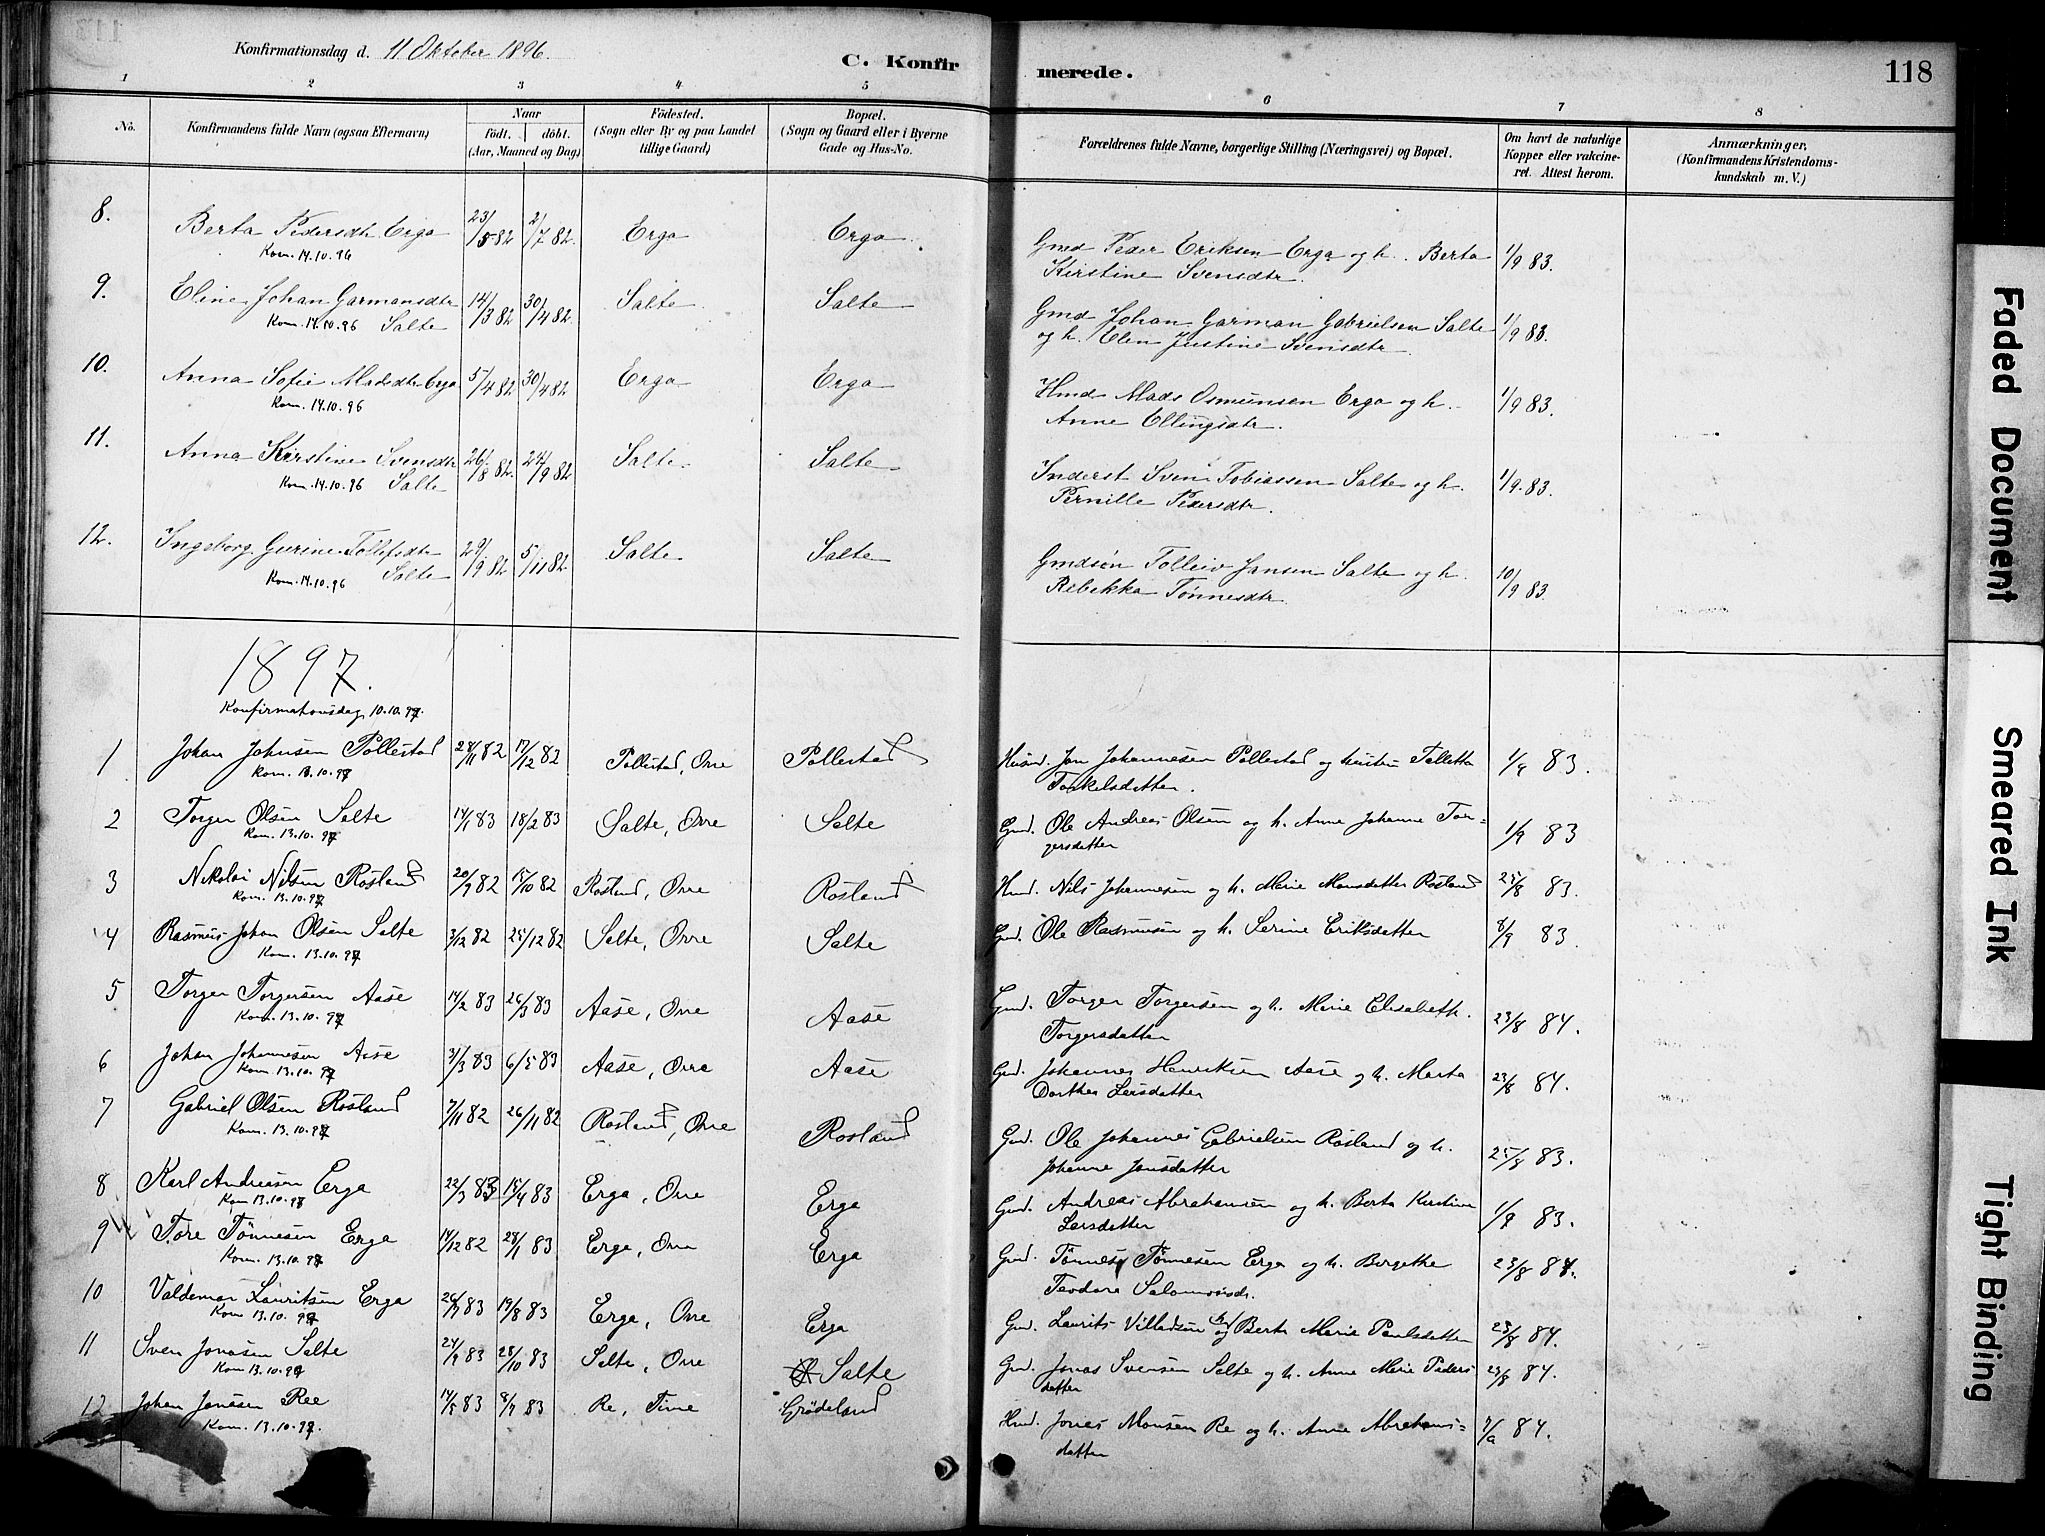 Konfirmationsdag d. 11 Oktober 1896.
C. Konfirmerede.
118
1 2 3 4 5 6 7 8
No.
Konfirmandens fulde Navn (ogsaa Efternavn)
Naar
født. døbt.
(Aar, Maaned og Dag)
Fødested.
(Sogn eller By og paa Landet
tillige Gaard)
Bopæl.
(Sogn og Gaard eller i Byerne
Gade og Hus-No.
Forældrenes fulde Navne, borgerlige Stilling (Næringsvei) og Bopæl.
Om havt de naturlige
Kopper eller vakcine-
ret. Attest herom.
Anmærkninger,
(Konfirmandens Kristendoms-
kundskab m. V.)
8. Berta Pedersdtr Erga 23/5 82 2/7 82. Erga Erga Gmd Peder Eriksen Erga og h. Berta 1/9 83.
Kom. 14.10.96 Kirstine Svensdtr.
9. Eline Johan Garmansdtr 14/3 82 30/4 82. Salte Salte Gmd Johan Garman Gabrielsen Salte 1/9 83.
Kom. 14.10.96 Salte og h. Elen Justine Svensdtr.
10. Anna Sofie Madsdtr Erga 5/4 82 30/4 82 Erga Erga Hmd Mads Osmunsen Erga og h. 1/9 83.
Kom. 14.10.96 Anne Ellingsdtr.
11. Anna Kirstine Svensdtr 26/8 82. 24/9 82 Salte Salte Inderst Sven Tobiassen Salte og h. 1/9. 83.
Kom. 14.10.96 Salte Pernille Pedersdtr.
12. Ingeborg Gurine Tollefsdtr 29/9 82 5/11 82. Salte Salte Gmdsøn Tolleiv Jansen Salte og h. 10/9 83.
Kom. 14.10.96 Salte Rebekka Tønnesdtr.
1897.
Konfirmationsdag 10.10.97.
1 Johan Johnsen Pollestad 28/11 82 17/12 82 Pollestad, Orre Pollestad Husmd. Jon Johannesen Pollestad og hustru Talletta 1/9 83.
Kom. 13.10.97 Torkelsdatter.
2 Torger Olsen Salte 14/1 83 18/2 83 Salte, Orre Salte Gmd. Ole Andreas Olsen og h. Anne Johanne Tor= 1/9 83
Kom. 13.10.97 gersdatter
3 Nikolai Nilsen Rosland 20/9 82 15/10 82 Rosland, Orre Rosland Hmd. Nils Johannesen og h. Marie Monsdatter Rosland 25/8 83.
Kom. 13.10.97
4 Rasmus Johan Olsen Salte 3/12 82 25/12 82 Salte, Orre Salte Gmd. Ole Rasmusen og h. Serine Eriksdatter 8/9 83.
Kom. 13.10.97
5 Torger Torgersen Aase 14/2 83 26/3 83 Aase, Orre Aase Gmd. Torger Torgersen og h. Marie Elisabeth 23/8 84.
Kom. 13.10.97 Torgersdatter
6 Johan Johannesen Aase 31/3 83 6/5 83 Aase, Orre Aase Gmd. Johannes Henriksen Aase og h. Marta 23/8 84.
Kom. 13.10.97 Dorthea Larsdatter
7 Gabriel Olsen Rosland 7/11 82 26/11 82 Rosland, Orre Rosland Gmd. Ole Johannes Gabrielsen Rosland og h. 25/8 83.
Kom. 13.10.97 Johanne Jonsdatter
8 Karl Andreasen Erga 22/3 83 15/4 83 Erga, Orre Erga Gmd. Andreas Abrahamsen og h. Berta Kirstine 1/9 83.
Kom 13.10.97 Larsdatter
9 Tore Tønnesen Erga 14/12 82 28/1 83 Erga, Orre Erga Gmd. Tønnes Tønnesen Erga og h. Bergethe 23/8 84.
Kom. 13.10.97 Teodora Salomonsd.
10 Valdemar Lauritsen Erga 26/7 83 19/8 83 Erga, Orre Erga Gmd. Laurits Villadsen og h. Berta Marie Paulsdatter 23/8 84.
Kom 13.10.97
11 Sven Jonasen Salte 24/9 83 28/10 83 Salte, Orre Salte Gmd. Jonas Svensen Salte og h. Anne Marie Peders 23/8 84.
Kom 13.10.97 datter
12 Johan Jonasen Ree 14/5 83 8/7 83 Re, Time Grødeland Hmd. Jonas Monsen Re og h. Anne Abrahams= 84.
Kom. 13.10.97. datter
Faded Document
Smeared Ink
Tight Binding